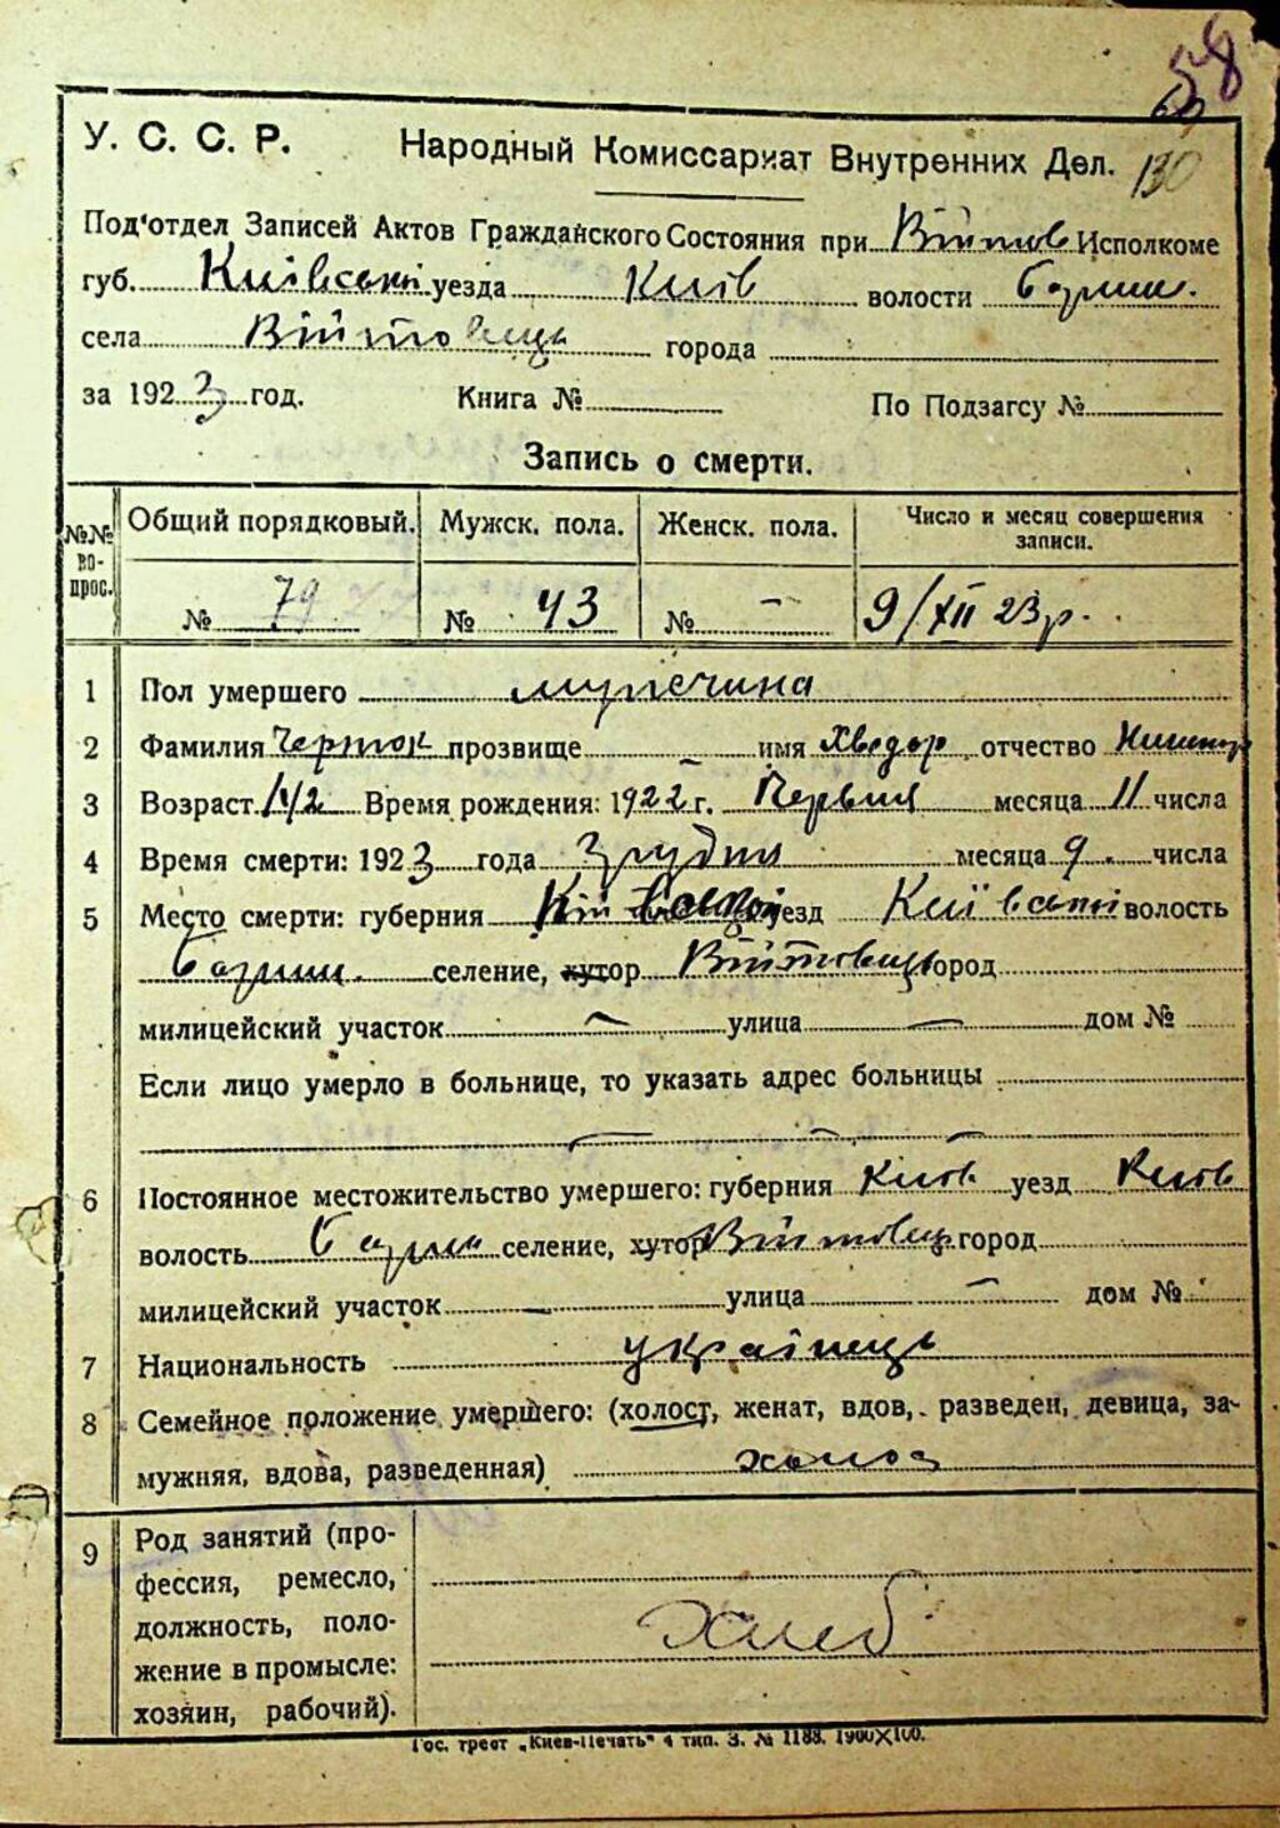 58
130
У. С. С. Р. Народный Комиссариат Внутренних Дел.
Под'отдел Записей Актов Гражданского Состояния при Війтов Исполкоме
губ. Київської уезда Київ волости
села Війтовець города
за 1923 год. Книга № По Подзагсу №
Запись о смерти.
№№ вопрос. Общий порядковый. Мужск. пола. Женск. пола. Число и месяц совершения записи.
№ 79 № 43 № — 9/XII 23р.
1 Пол умершего мужчина
2 Фамилия Черток прозвище — имя Хведор отчество
3 Возраст 1 1/2 Время рождения: 1922 г. Червня месяца 11 числа
4 Время смерти: 1923 года Грудня месяца 9. числа
5 Место смерти: губерния уезд Київської волость
селение, хутор Війтовець город
милицейский участок — улица — дом №
Если лицо умерло в больнице, то указать адрес больницы
— — —
6 Постоянное местожительство умершего: губерния Київ. уезд Київ
волость селение, хутор Війтовець город
милицейский участок — улица — дом №
7 Национальность українець
8 Семейное положение умершего: (холост, женат, вдов, разведен, девица, за-
мужняя, вдова, разведенная) холос
9 Род занятий (про-
фессия, ремесло,
должность, поло-
жение в промысле:
хозяин, рабочий).
хлеб
Гос. трест „Киев-Печать“ 4 тип. З. № 1188. 1900X100.